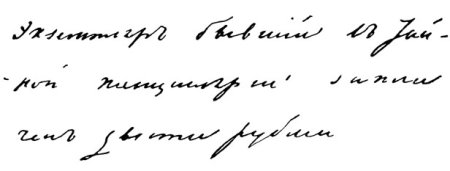 Экземпляръ бывшій въ Тай-
-ной канцеляріи запла
ченъ двѣсти рубли